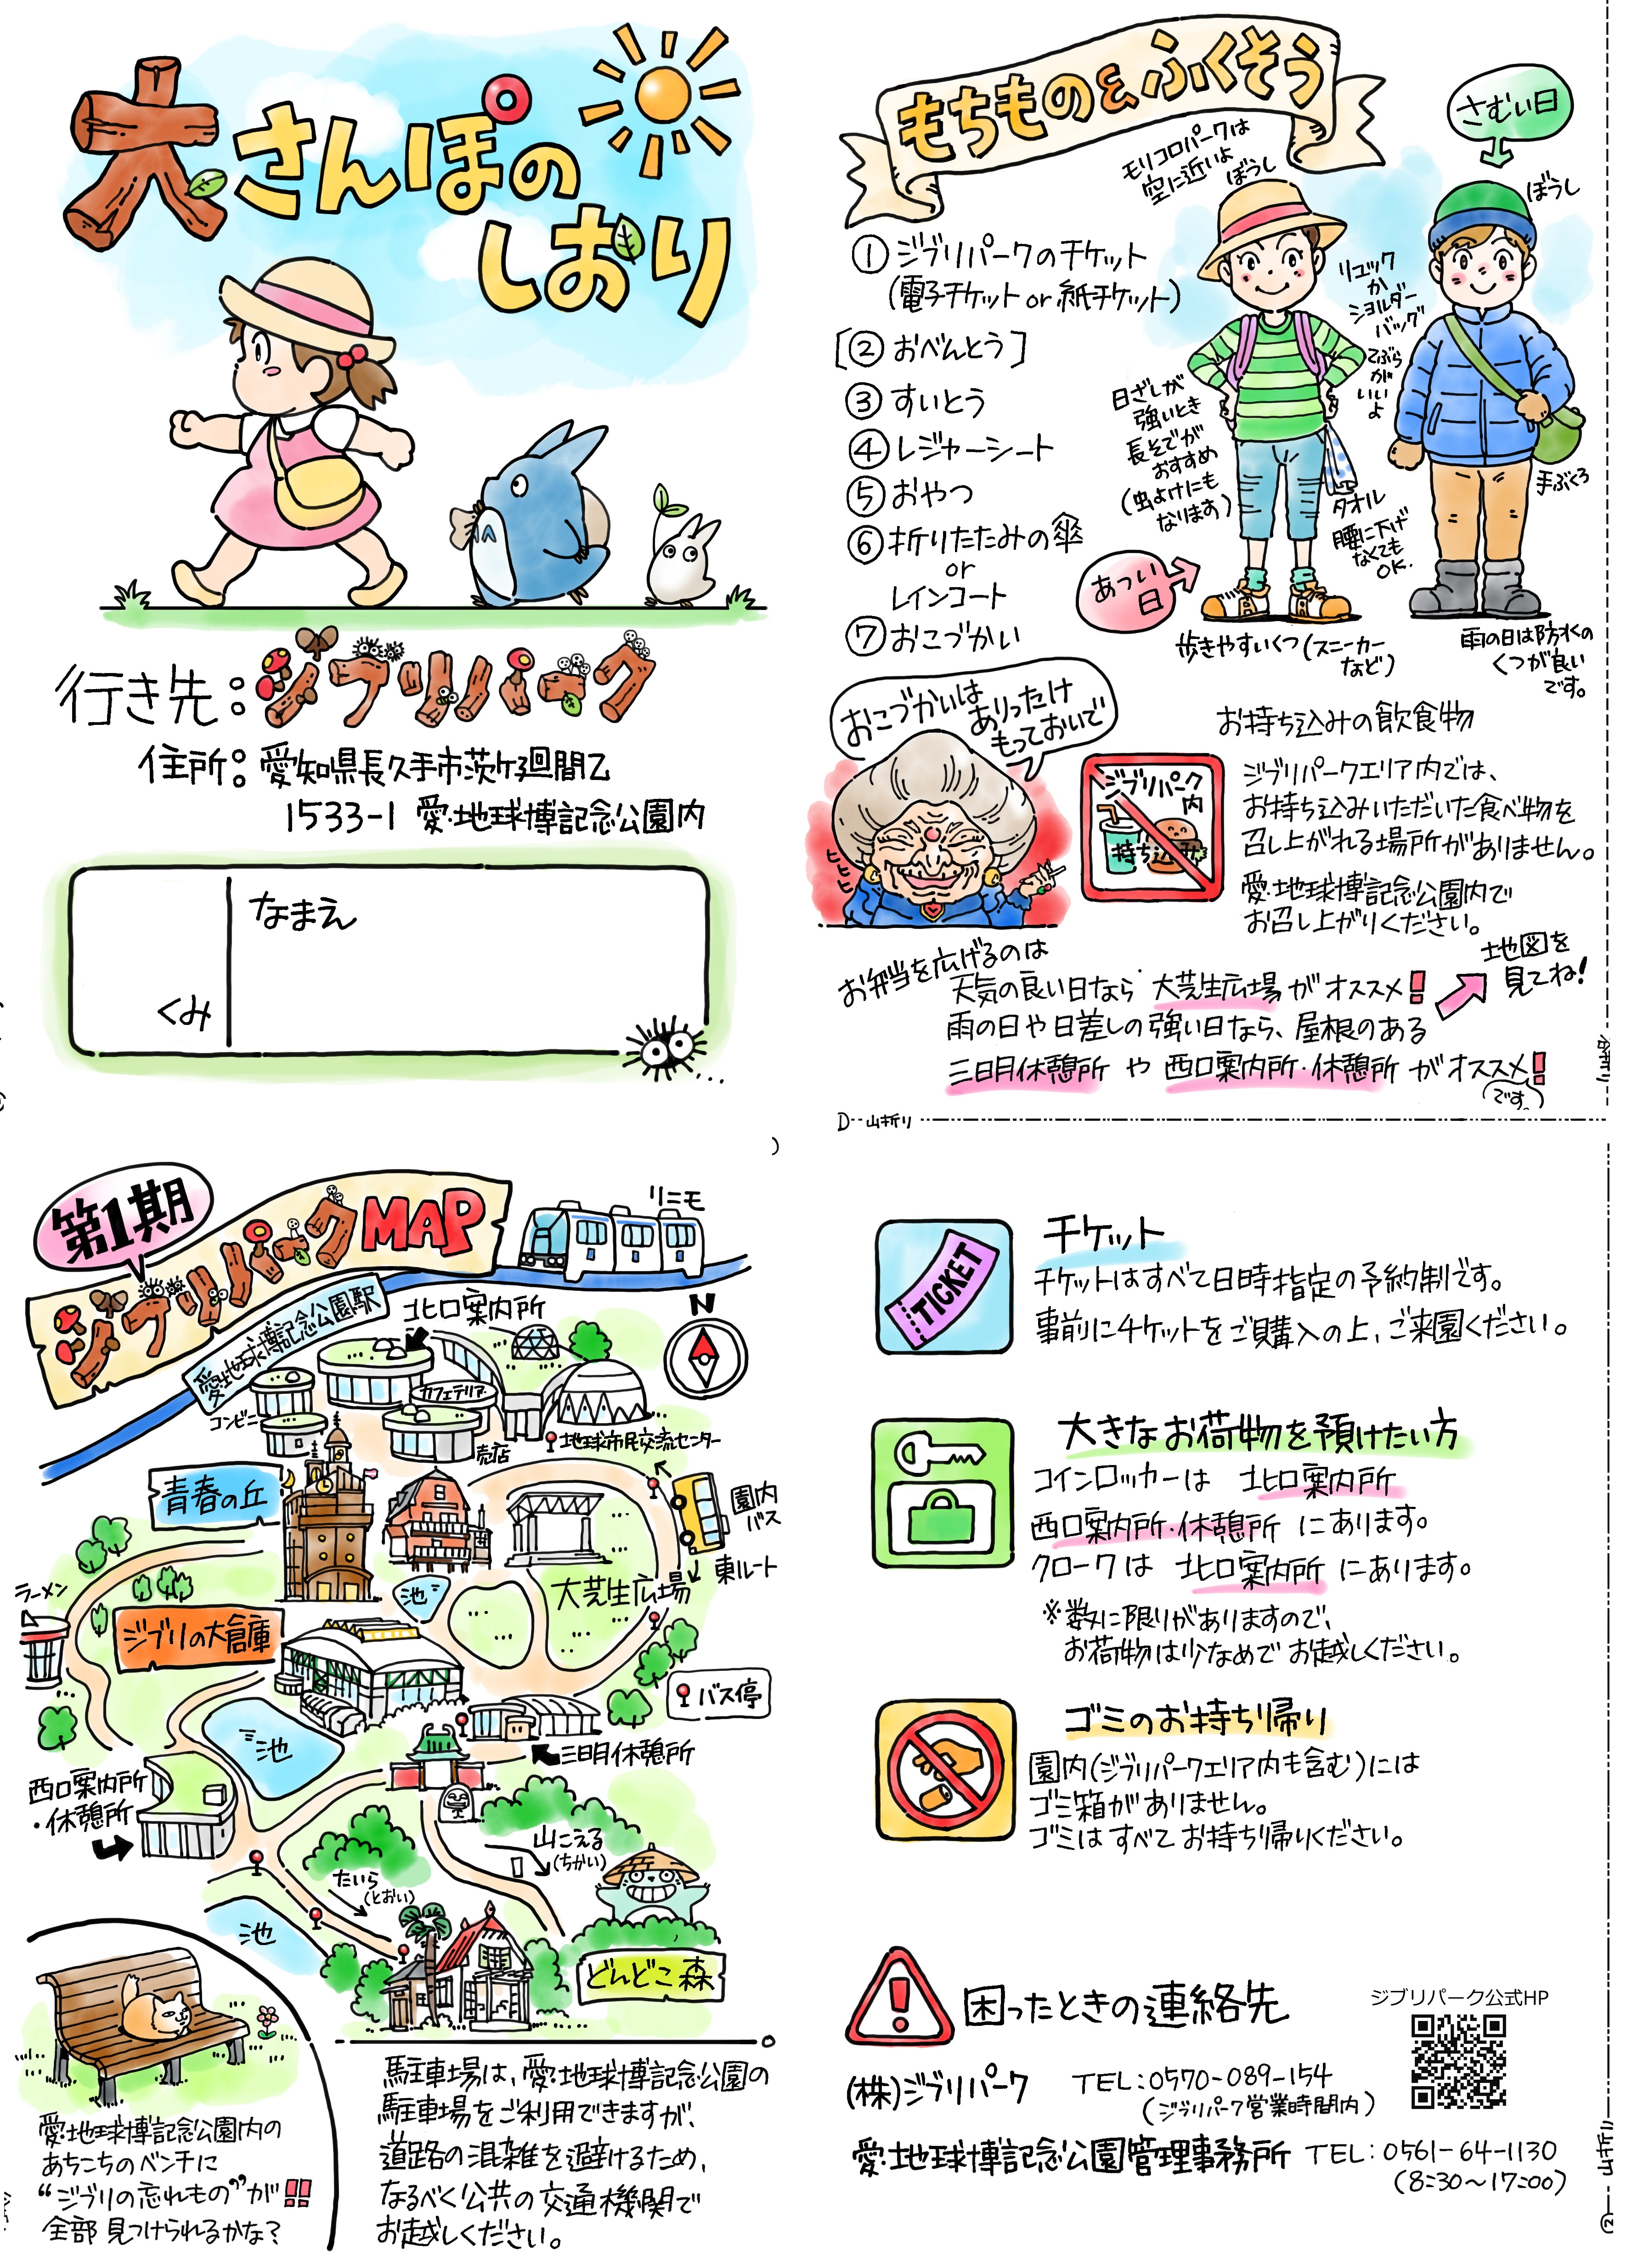 大さんぽの
しおり
行き先：ジブリパーク
住所：愛知県長久手市茨ケ廻間乙
1533-1 愛・地球博記念公園内
なまえ
くみ
もちもの&ふくそう
①ジブリパークのチケット
（電子チケットor紙チケット）
[②おべんとう]
③すいとう
④レジャーシート
⑤おやつ
⑥折りたたみの傘
or
レインコート
⑦おこづかい
モリコロパークは
空に近いよ
ぼうし
さむい日
ぼうし
リュック
か
ショルダー
バッグ
てぶら
が
いい
よ
日ざしが
強いとき
長そでが
おすすめ
（虫よけにも
なります）
タオル
腰に下げ
なくても
OK.
手ぶくろ
あつい
日
歩きやすいくつ（スニーカー
など）
雨の日は防水の
くつが良い
です。
おこづかいは
ありったけ
もっておいで
ヒヒヒヒ
ジブリパーク
内
持ち込み
お持ち込みの飲食物
ジブリパークエリア内では、
お持ち込みいただいた食べ物を
召し上がれる場所がありません。
愛・地球博記念公園内で
お召し上がりください。
地図を
見てね!
お弁当を広げるのは
天気の良い日なら 大芝生広場がオススメ!!
雨の日や日差しの強い日なら、屋根のある
三日月休憩所 や 西口案内所・休憩所 がオススメ!!
（です。）
D 山折り
谷折り
第1期
ジブリパークMAP
リニモ
愛・地球博記念公園駅
北口案内所
N
コンビニ
カフェテリア
売店
地球市民交流センター
青春の丘
園内
バス
東ルート
池
大芝生広場
ラーメン
ジブリの大倉庫
バス停
池
三日月休憩所
西口案内所
・休憩所
山こえる
（ちかい）
たいら
（とおい）
池
どんどこ森
愛・地球博記念公園内の
あちこちのベンチに
“ジブリの忘れもの”が!!
全部 見つけられるかな？
駐車場は、愛・地球博記念公園の
駐車場をご利用できますが、
道路の混雑を避けるため、
なるべく公共の交通機関で
お越しください。
TICKET
チケット
チケットはすべて日時指定の予約制です。
事前にチケットをご購入の上、ご来園ください。
大きなお荷物を預けたい方
コインロッカーは 北口案内所
西口案内所・休憩所 にあります。
クロークは 北口案内所 にあります。
※数に限りがありますので、
お荷物は少なめで お越しください。
ゴミのお持ち帰り
園内（ジブリパークエリア内も含む）には
ゴミ箱がありません。
ゴミはすべてお持ち帰りください。
困ったときの連絡先
ジブリパーク公式HP
(株)ジブリパーク TEL:0570-089-154
（ジブリパーク営業時間内）
愛・地球博記念公園管理事務所 TEL:0561-64-1130
（8:30〜17:00）
山折り
②